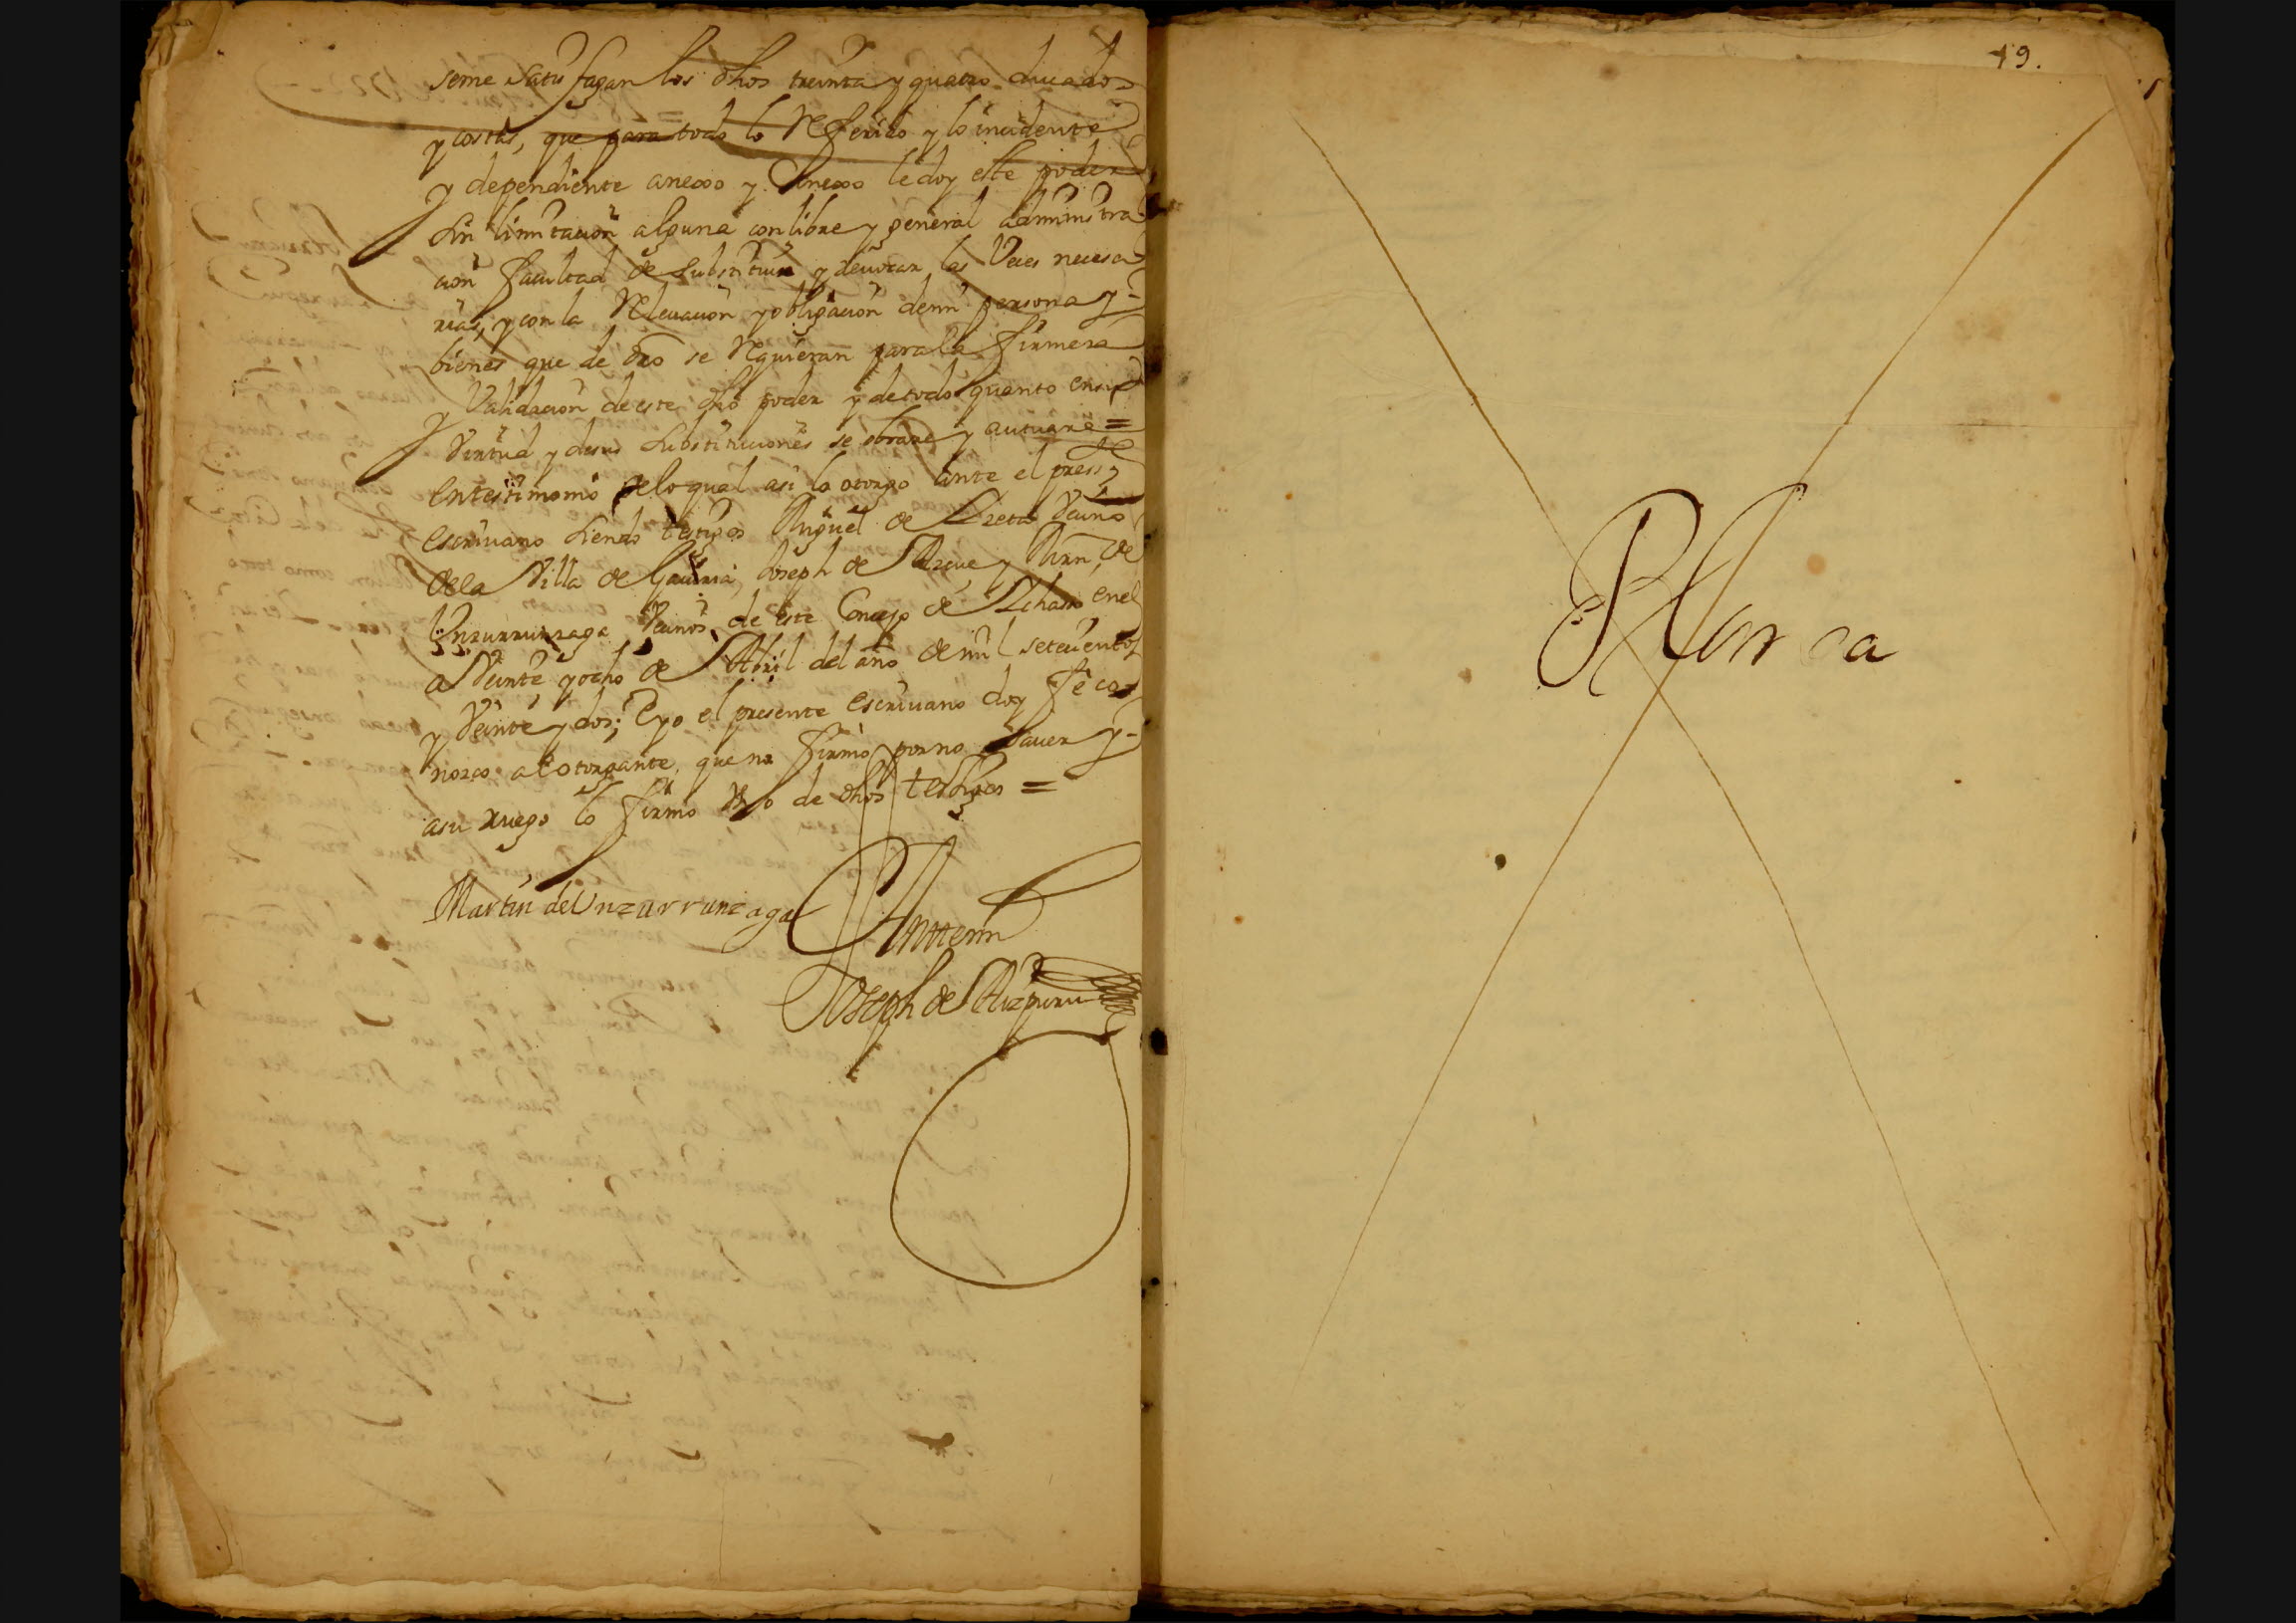 seme satisfagan los dhos treinta y quatro ducados
y costas, que para todo lo Referido y lo incidente
y dependiente anexso y Conexso le doy este poder
sin limitacion alguna con libre y general administra
cion facultad de substituir y revocar las Veces necesa
rias, y con la Relevacion y obligacion demi persona y
bienes que de dro se Requieran para la firmeza
y Validacion de este dho poder y de todo quanto en su
Virtud y desus substituciones se obrare y autuare =
En testimonio de lo qual asi lo otorgo ante el press.te
escrivano siendo testigos Miguel de vecino
de la Villa de Gauiria, Joseph de y Mrn de
Unzurrunzaga vecinos de este Concejo de Ichasso en el
a Veinte y ocho de Abril del año de mil setecientos
y Veinte y dos; E yo el presente escrivano doy fe co
nozco al otorgante, que no firmò por no saver y
a su ruego lo firmò Vno de dhos testigos =
Martin de Unzurrunzaga
Antte mi
Joseph de Aizpuru
19.
Blanca